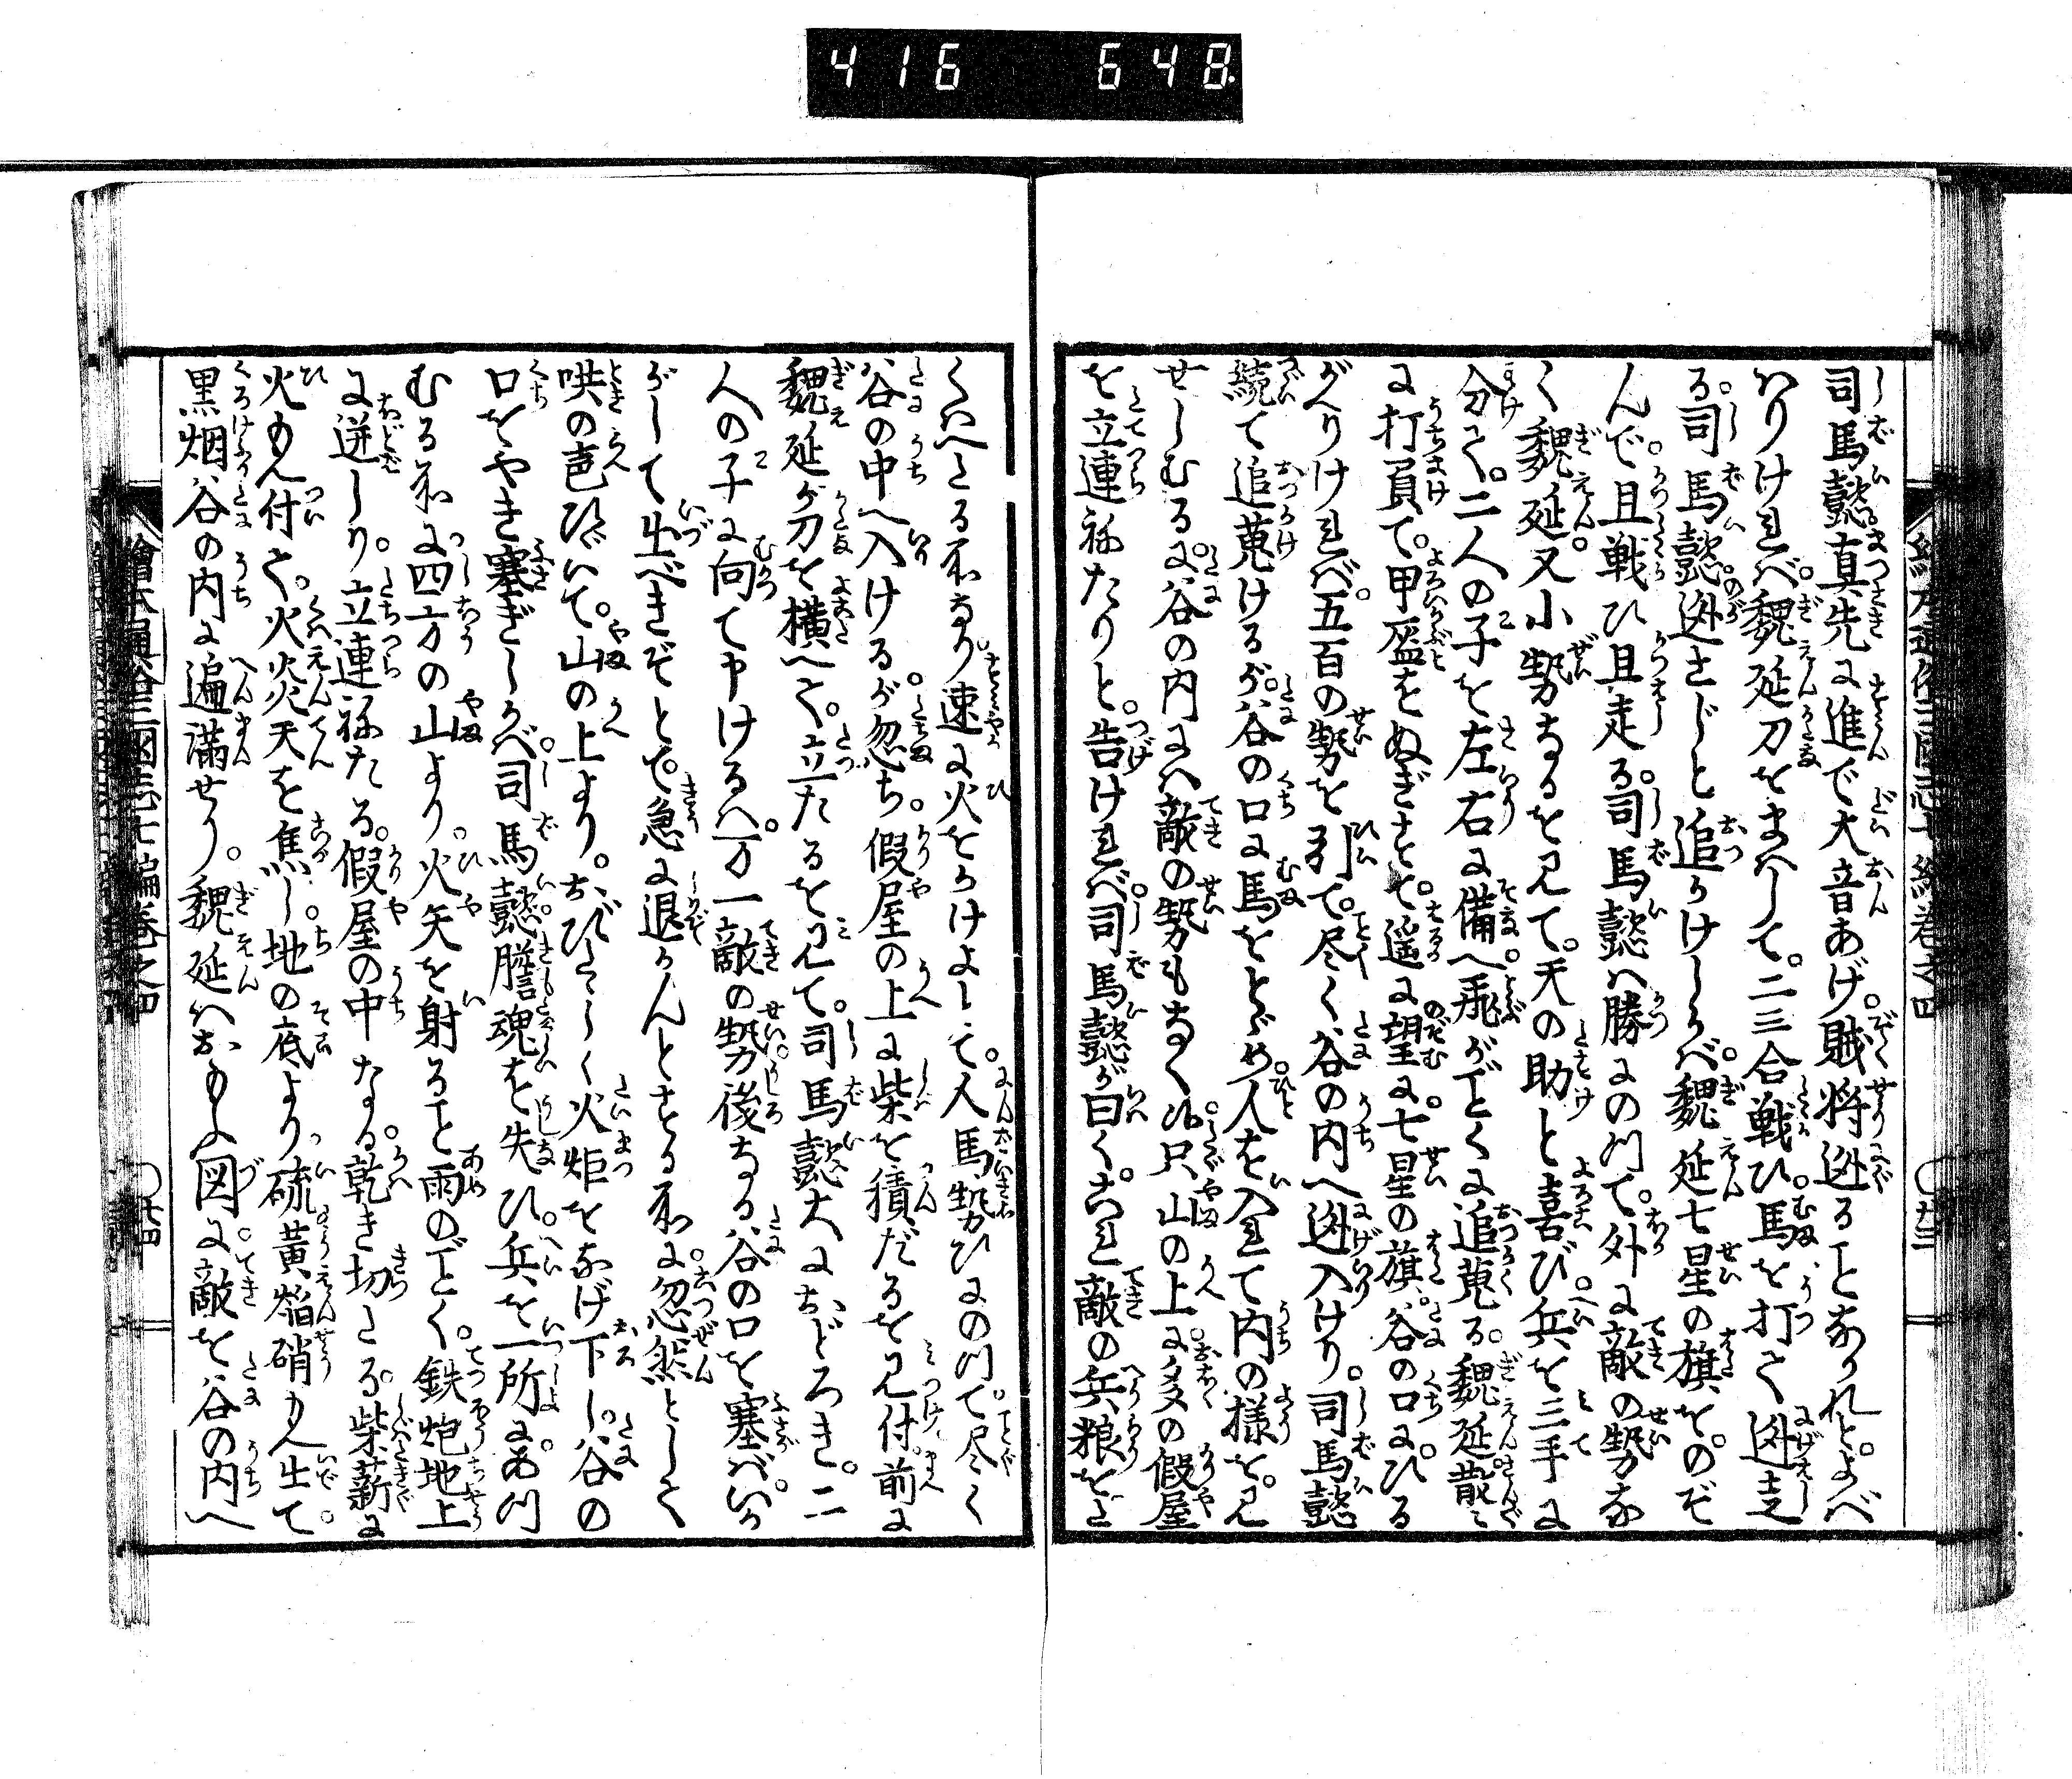 416 648
司馬懿真先に進で大音あげ。賊将迯ることなかれと。よべ
ハりけれバ。魏延刀をまハして。二三合戦ひ。馬を打て迯走
る。司馬懿。迯さじと追かけしかバ。魏延七星の旗を。のぞ
んで。且戦ひ且走る。司馬懿ハ勝にのつて。外に敵の勢な
く魏延。又小勢なるを見て。天の助と喜び。兵を三手に
分て。二人の子を左右に備へ。飛がごとくに追蒐る。魏延散々
に打負て。甲盔をぬぎさて。遥に望に。七星の旗。谷の口に。ひる
がへりけれバ。五百の勢を引て。尽く谷の内へ迯入けり。司馬懿
続て追蒐けるが。谷の口に馬をとゞめ。人を入れて内の様を。見
せしむるに。谷の内にハ敵の勢もなく。只山の上に。多の假屋
を立連祢たりと。告けれバ。司馬懿が曰く。これ敵の兵粮をた
くハへたる所なり。速に火をかけよして。人馬勢ひにのつて。尽く
谷の中へ入けるが。忽ち。假屋の上に柴を積だるを見付。前に
魏延が刀を横へて。立たるを見て。司馬懿大におどろき。二
人の子に向て申けるハ。万一敵の勢後なる谷の口を塞バ。いか
がして出べきぞとて。急に退かんとする所に。忽然として
哄の声ひゞいて。山の上より。おびたゝしく火炬をなげ下し。谷の
口をやき塞ぎしかバ。司馬懿。膽魂を失ひ。兵を一所に。あつ
むる所に四方の山より。火矢を射ること雨のごとく。鉄炮地上
に迸しり。立連祢たる。假屋の中なる。乾き切たる。柴薪に
火もえ付て。火焱天を焦し。地の底より硫黄焰硝もえ出て。
黒烟谷の内に遍満せり。魏延ハおもふ図に。敵を谷の内へ
繪本通俗三國志七編巻之四